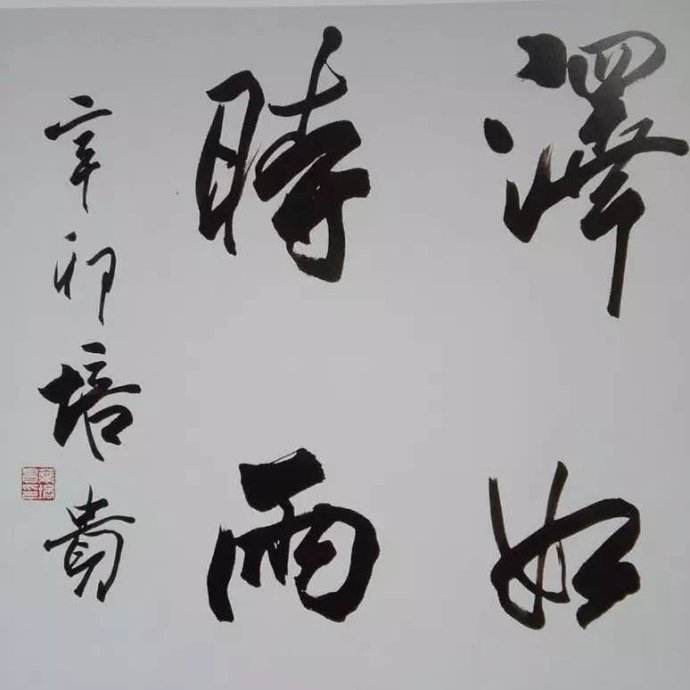 澤如
時雨
辛卯培貴